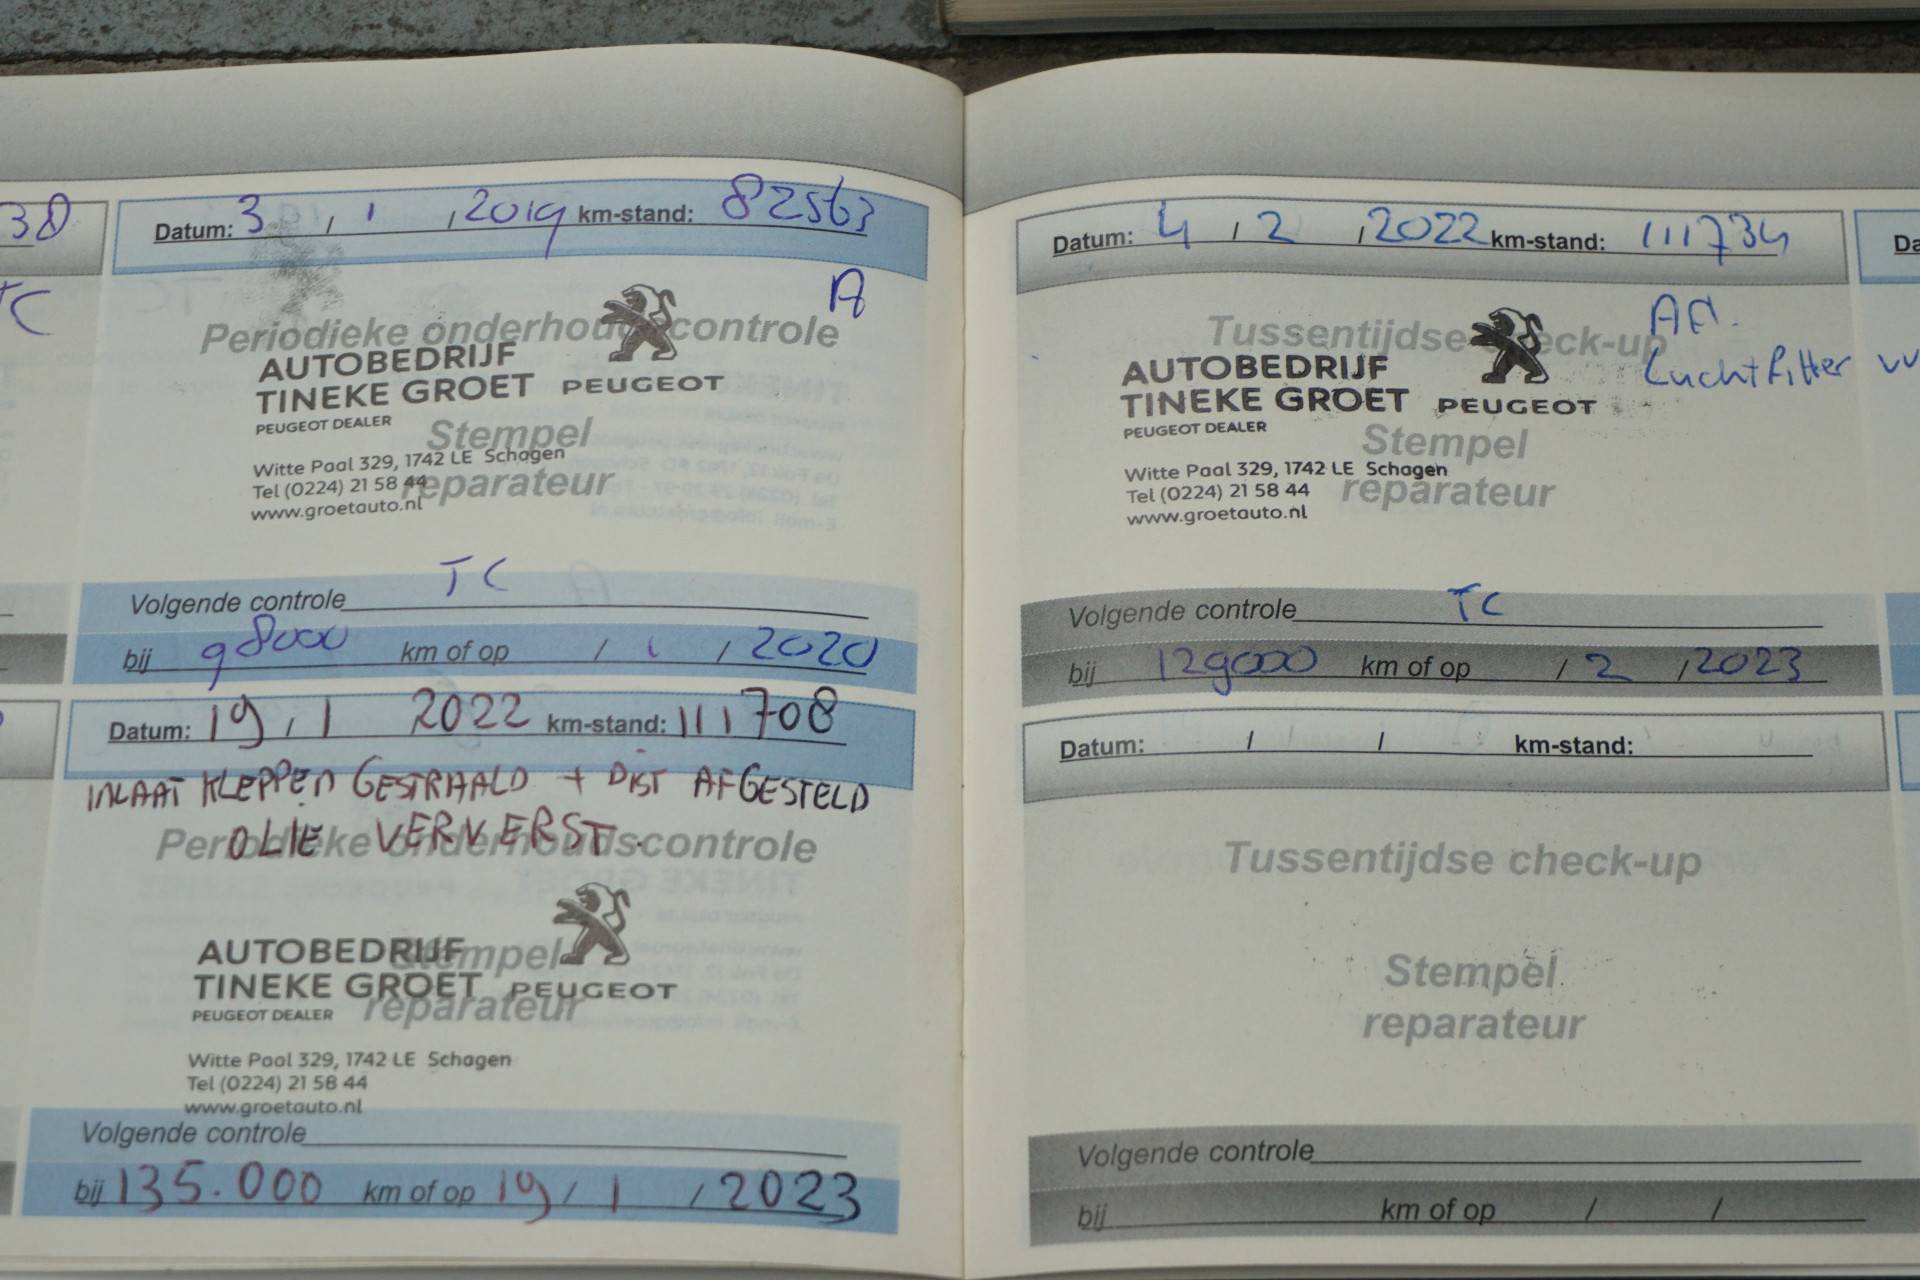 38
TC
Datum: 3 / 1 / 2019 km-stand: 82563
A
Periodieke onderhoudscontrole
AUTOBEDRIJF
TINEKE GROET PEUGEOT
PEUGEOT DEALER
Stempel
Witte Paal 329, 1742 LE Schagen
Tel (0224) 21 58 44
reparateur
www.groetauto.nl
Volgende controle TC
bij 98000 km of op / 1 / 2020
Datum: 19 / 1 2022 km-stand: 111708
INLAAT KLEPPEN GESTRAALD + DIST AFGESTELD
OLIE VERVERST.
Periodieke onderhoudscontrole
AUTOBEDRIJF
Stempel
TINEKE GROET PEUGEOT
PEUGEOT DEALER
reparateur
Witte Paal 329, 1742 LE Schagen
Tel (0224) 21 58 44
www.groetauto.nl
Volgende controle
bij 135.000 km of op 19 / 1 / 2023
Datum: 4 / 2 / 2022 km-stand: 111734
Tussentijdse check-up
AUTOBEDRIJF
Luchtfilter
TINEKE GROET PEUGEOT
PEUGEOT DEALER
Stempel
Witte Paal 329, 1742 LE Schagen
Tel (0224) 21 58 44
reparateur
www.groetauto.nl
Volgende controle TC
bij 129000 km of op / 2 / 2023
Datum: / / km-stand:
Tussentijdse check-up
Stempel
reparateur
Volgende controle
bij km of op / /
Da